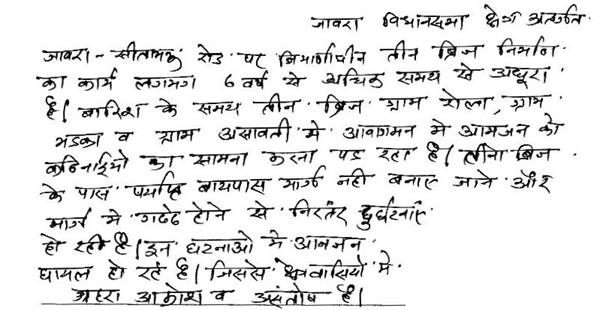 जावरा विधानसभा क्षेत्र अंतर्गत
जावरा - सीतामऊ रोड पर निर्माणाधीन तीन ब्रिज निर्माण
का कार्य लगभग 6 वर्ष से अधिक समय से अधूरा
है। बारिश के समय तीन ब्रिज ग्राम रोला, ग्राम
भडका व ग्राम असावती मे आवागमन मे आमजन को
कठिनाईयो का सामना करना पड रहा है। तीनो ब्रिज
के पास पर्याप्त बायपास मार्ग नही बनाए जाने और
मार्ग मे गढढे होने से निरंतर दुर्घटनाएं
हो रही है। इन घटनाओ मे आमजन
घायल हो रहे है। जिससे क्षेत्रवासियो मे
गहरा आक्रोश व असंतोष है।